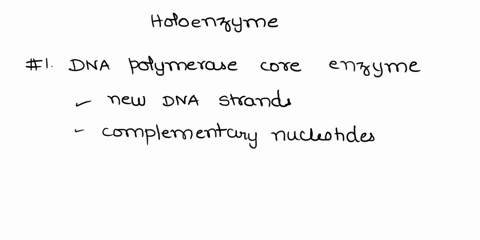 Holoenzyme
#1. DNA polymerase core enzyme
✓ new DNA strands
- complementary nucleotides